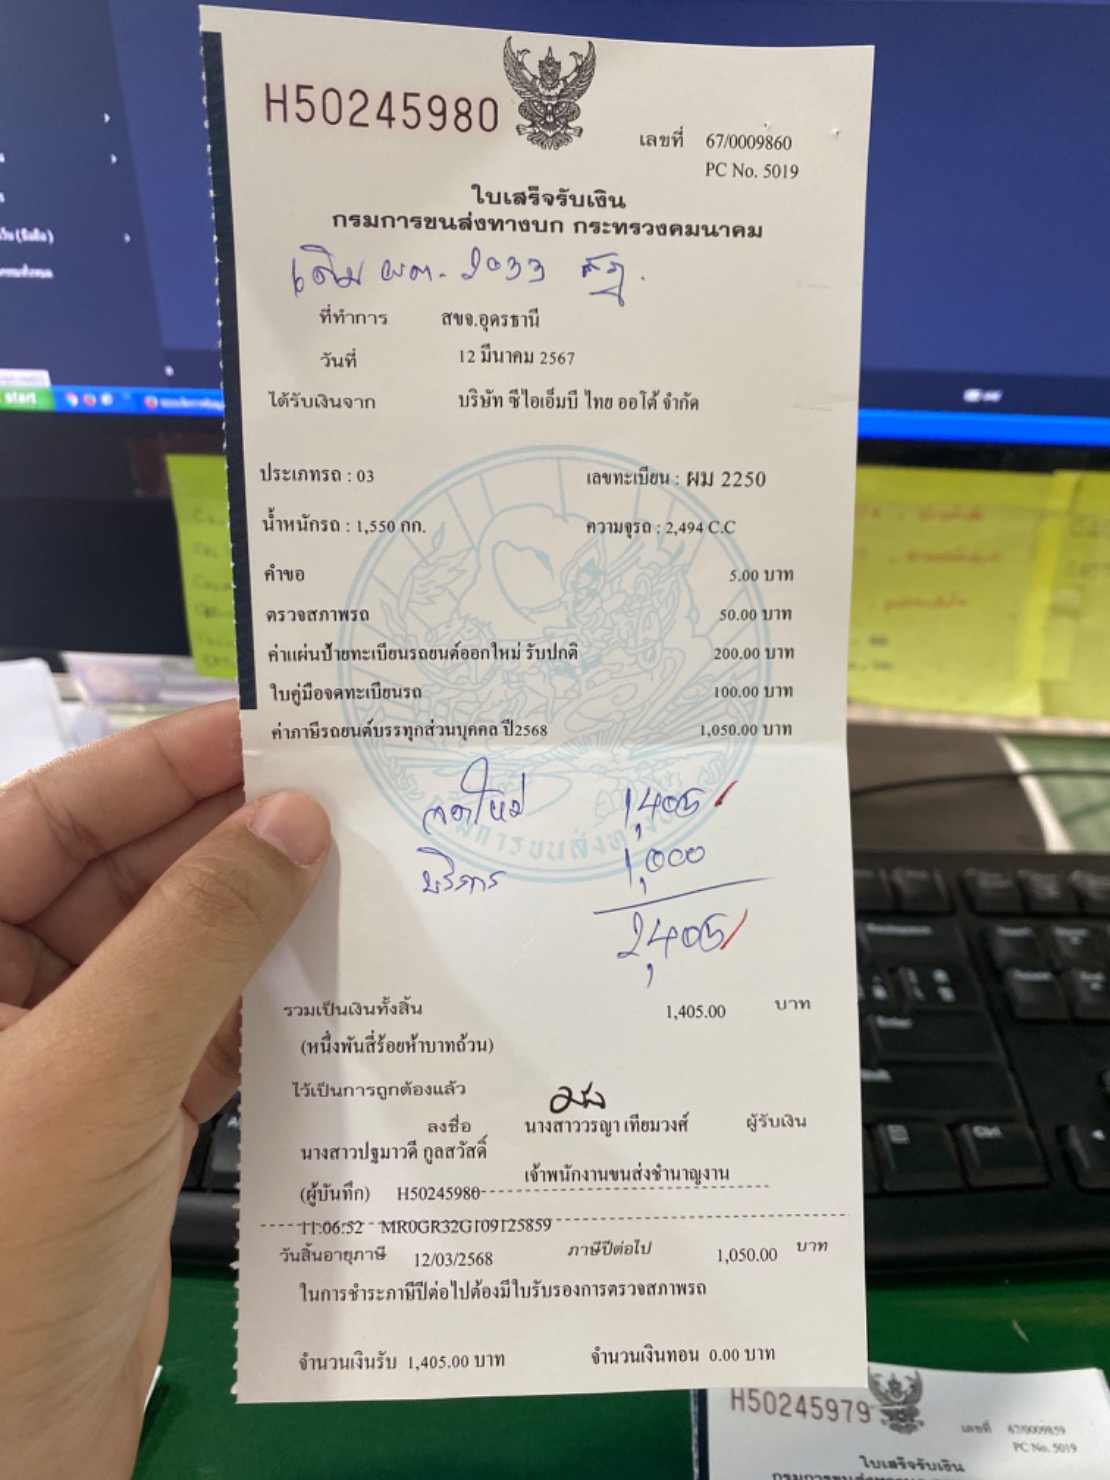 H50245980
เลขที่ 67/0009860
PC No. 5019
ใบเสร็จรับเงิน
กรมการขนส่งทางบก กระทรวงคมนาคม
เดิม ผค. 2033
ที่ทำการ สขจ.อุดรธานี
วันที่ 12 มีนาคม 2567
ได้รับเงินจาก บริษัท ซีไอเอ็มบี ไทย ออโต้ จำกัด
ประเภทรถ : 03 เลขทะเบียน : ผม 2250
น้ำหนักรถ : 1,550 กก. ความจุรถ : 2,494 C.C
คำขอ 5.00 บาท
ตรวจสภาพรถ 50.00 บาท
ค่าแผ่นป้ายทะเบียนรถยนต์ออกใหม่ รับปกติ 200.00 บาท
ใบคู่มือจดทะเบียนรถ 100.00 บาท
ค่าภาษีรถยนต์บรรทุกส่วนบุคคล ปี2568 1,050.00 บาท
จดใหม่ 1,405
บริการ 1,000
2,405
กรมการขนส่งทางบก
รวมเป็นเงินทั้งสิ้น 1,405.00 บาท
(หนึ่งพันสี่ร้อยห้าบาทถ้วน)
ไว้เป็นการถูกต้องแล้ว
ลงชื่อ นางสาววรญา เทียมวงศ์ ผู้รับเงิน
นางสาวปฐมาวดี กูลสวัสดิ์
เจ้าพนักงานขนส่งชำนาญงาน
(ผู้บันทึก) H50245980
11:06:52 MR0GR32G109125859
วันสิ้นอายุภาษี 12/03/2568 ภาษีปีต่อไป 1,050.00 บาท
ในการชำระภาษีปีต่อไปต้องมีใบรับรองการตรวจสภาพรถ
จำนวนเงินรับ 1,405.00 บาท จำนวนเงินทอน 0.00 บาท
H50245979
เลขที่ 67/0009859
PC No. 5019
ใบเสร็จรับเงิน
start
Enter
Ctrl